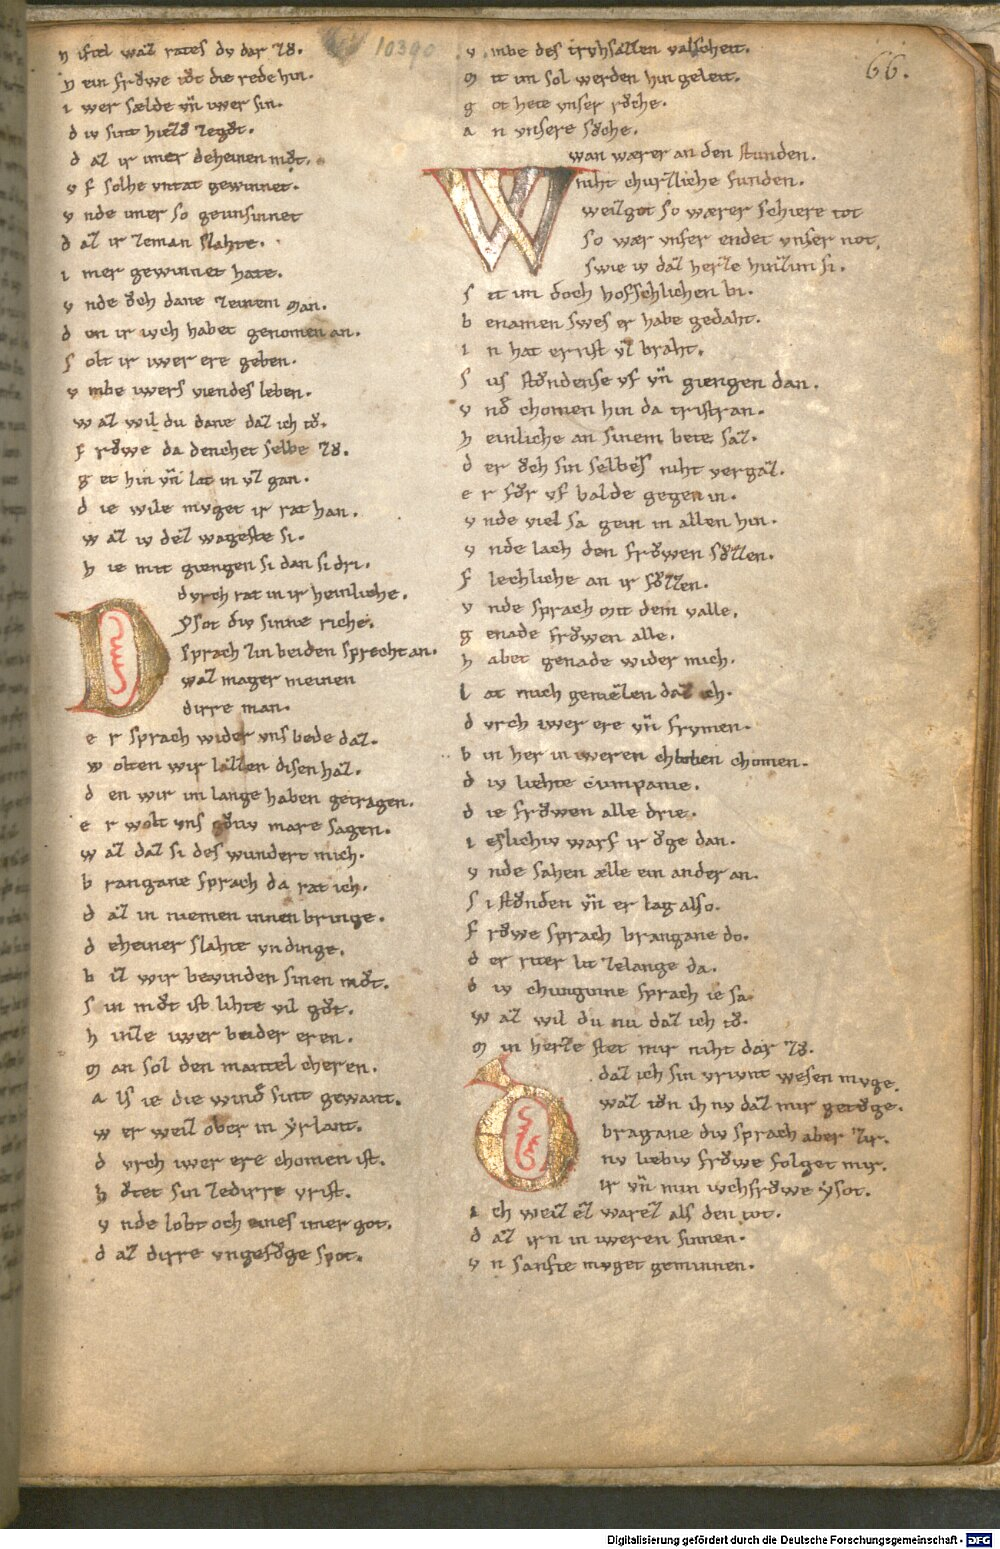 n iftel waz rates dv dar zͦv.
n ein frowe tͦvt die rede hin.
i wer sælde vn̄ iwer sin.
d iv sint hie zegͦvt.
d az ir imer deheinen mͦvt.
v f solhe vntat gewinnet.
v nde imer so gevnsinnet
d az ir zeman slahte.
i mer gewinnet hate.
v nde ͦvch dane zeinem man.
d en ir iveh habet genomen an.
s olt ir iwer ere geben.
v mbe iwers viendes leben.
w az wil du dane daz ich tͦv.
f rͦvwe da denchet selbe zͦv.
g et hin vn̄ lat in vz gan.
d ie wile mvget ir rat han.
w az iv dez wageste si.
h ie mit giengen si dan si dri.
D dvrch rat in ir heinliche.
ysot div sinne riche.
sprach zin beiden sprechtan.
waz mager meinen
dirre man.
e r sprach wider vns bede daz.
w olten wir lazzen disen haz.
d en wir im lange haben getragen.
e r wolt vns gͦvtiv mare sagen.
w az daz si des wundert mich.
b rangane sprach da rat ich.
d az in niemen innen bringe.
d eheiner slahte vndinge.
b iz wir bevinden sinen mͦvt.
s in mͦvt ist lihte vil gͦvt.
h inze iwer beider eren.
m an sol den mantel cheren.
a ls ie die wind̄ sint gewant.
w er weiz ober in yrlant.
d vrch iwer ere chomen ist.
h ͦvtet sin zedirre vrist.
v nde lobt och eines imer got.
d az dirre vngefͦvge spot.
v mbe des trvhsæzzen valscheit.
m it im sol werden hin geleit.
g ot hete vnser rͦvche.
a n vnsere sͦvche.
W wan wærer an den stunden.
niht churzliche funden.
weizgot so wærer schiere tot
so wær vnser endet vnser not,
swie iv daz herze hinzim si.
s it im doch hoffchlichen bi.
b enamen swes er habe gedaht.
i n hat ernst vz braht.
s us stͦvndense vf vn̄ giengen dan.
v nd̄ chomen hin da tristran.
h einliche an sinem bete saz.
d er ͦvch sin selbes niht vergaz.
e r fͦvr vf balde gegen in.
v nde viel sa gein in allen hin.
v nde lach den frͦvwen sͦvzzen.
f lechliche an ir fͦvzzen.
v nde sprach mit dem valle.
g enade frͦvwen alle.
h abet genade wider mich.
l at mich geniezen daz ich.
d vrch iwer ere vn̄ frvmen.
b in her in weren chomen.
d iv liehte cumpanie.
d ie frͦvwen alle drie.
i eslichiv warf ir ͦvge dan.
v nde sahen ælle ein ander an.
s i stͦvnden vn̄ er lag also.
f rͦvwe sprach brangane do.
d er riter lit zelange da.
d iv chunginne sprach ie sa
w az wil du nu daz ich tͦv.
m in herze stet mir niht dar zͦv.
D daz ich sin vriunt wesen mvge.
waz tͦvn ih nv daz mir getͦvge.
bragane div sprach aber zir.
nv liebiv frͦvwe folget mir.
ir vn̄ min ivchfrͦvwe ysot.
i ch weiz ez warez als den tot.
d az irn in iweren sinnen.
v n sanfte mvget geminnen.
66.
10390
Digitalisierung gefördert durch die Deutsche Forschungsgemeinschaft - DFG